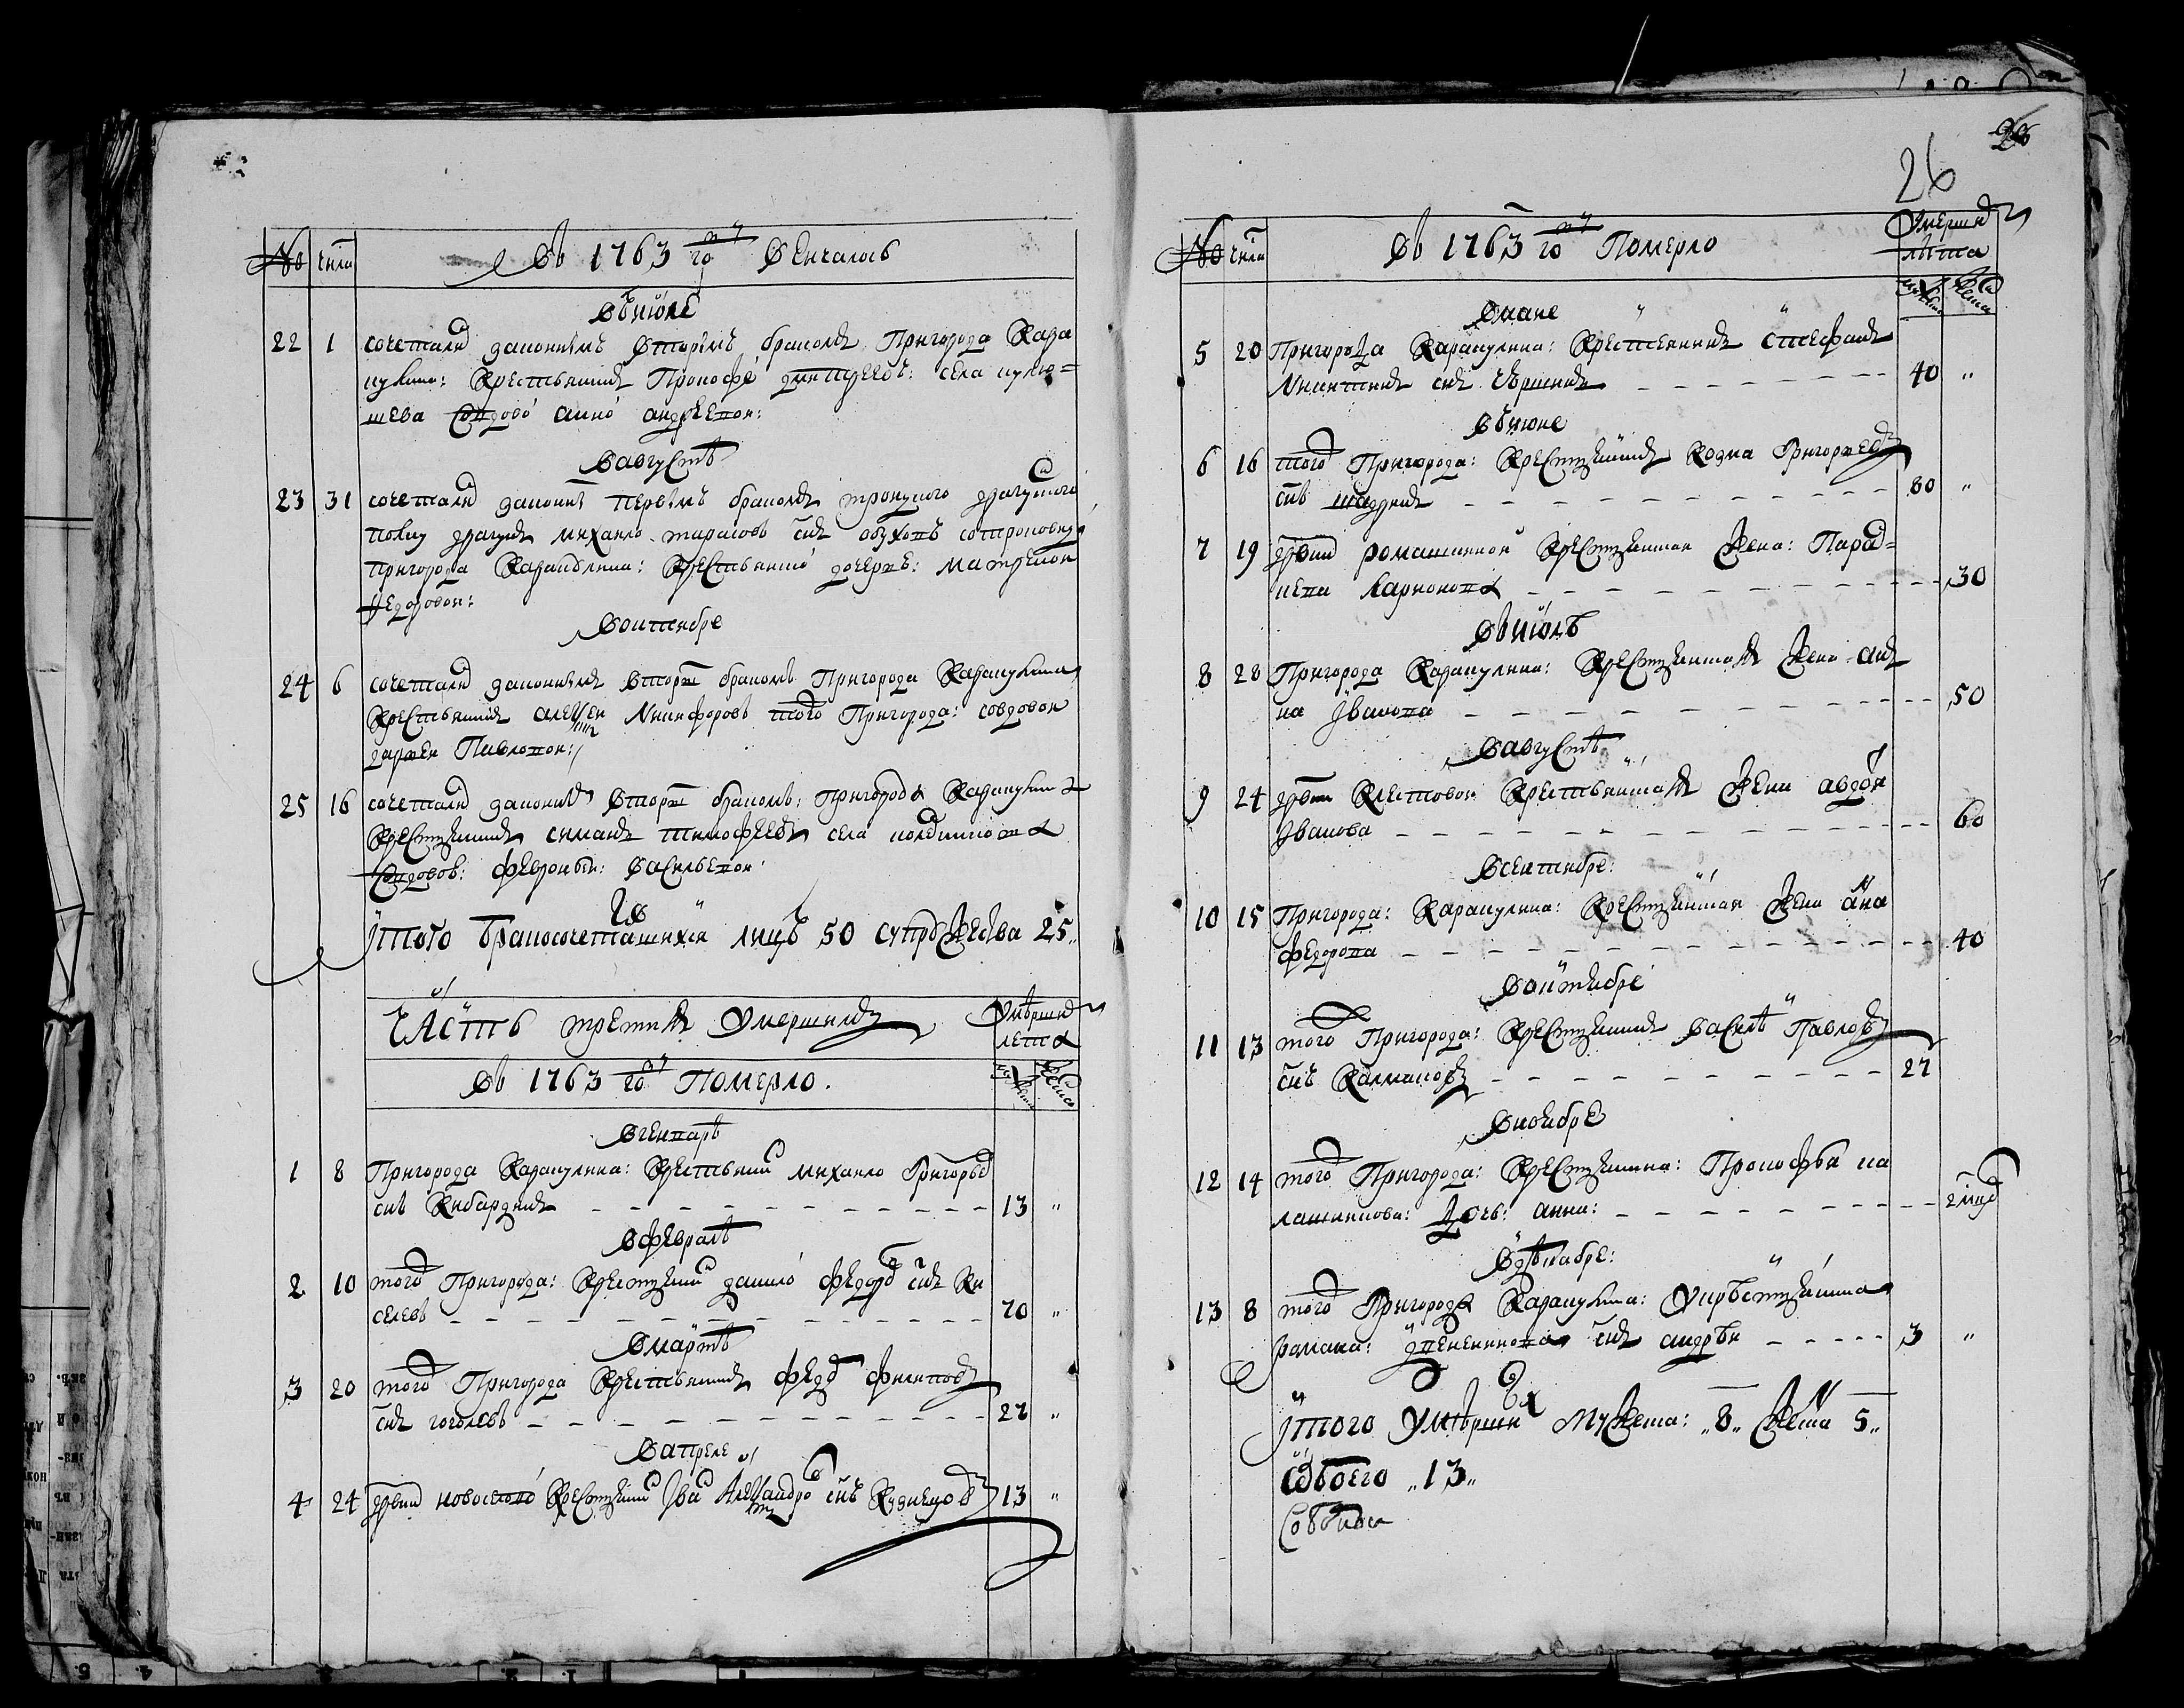 № числ Въ 1763 м го Венчалось
Въ июле
22 1 сочетался законнымъ вторымъ бракомъ Пригорода Кара
кулина: Крестьянинъ Прокофе Дмитреевъ: села
шева совдовой анной андреевой:
В августе
23 31 сочетался законны первымъ бракомъ троицкого драгунского
полку драгунъ михаило тарасовъ снъ обуховъ
Пригорода Каракулина: Крестьянской дочерью: матреной
Федоровой:
В октябре
24 6 сочетался законнымъ вторы бракомъ Пригорода Каракулина
Крестьянинъ алексей Никифоровъ того Пригорода: совдовой
дарьей Павловой:
25 16 сочетался законны вторы бракомъ: Пригорода Каракулина
Крестьянинъ симанъ тимофеевъ села
совдовой: февроньей: васильевой:
Итого бракосочетавшихся лицъ 50 супружества 25
ЧАсть третия Умершихъ Умершихъ лета
Въ 1763 м го Померло. мужеска женска
В генваре
1 8 Пригорода Каракулина: Крестьянинъ михаило Григорьевъ
снъ Кибардинъ 13 "
В феврале
2 10 того Пригорода: Крестьянинъ данило федоровъ снъ Ки
селевъ 70 "
В марте
3 20 того Пригорода Крестьянинъ федоръ филиповъ
снъ гоголевъ 27 "
В апреле
4 24 дрвни новоселово Крестьянинъ Iванъ Александровъ снъ Кузнецовъ 13 "
26
№ числ Въ 1763 м го Померло Умершихъ лета
мужеска женска
В мае
5 20 Пригорода Каракулина: Крестьянинъ стефанъ
Никитинъ снъ 40 "
Въ июне
6 16 того Пригорода: Крестьянинъ Козма Григорьевъ
снъ шадринъ 80 "
7 19 дрвни ромашкиной Крестьянина жена: Парас=
кева Ларионова 30
Въ июль
8 28 Пригорода Каракулина: Крестьянина жена
на Iванова 50
В августе
9 24 дрвни Клестовой Крестьянина жена авдотья
Iванова 60
В сентябре:
10 15 Пригорода: Каракулина: Крестьянина жена анна
федорова 40
В октябре
11 13 того Пригорода: Крестьянинъ василей Павловъ
снъ Калмаковъ 27
В ноябре
12 14 того Пригорода: Крестьянина: Прокофья ка
лашникова: дочь: анна: 2 мцъ
В декабре:
13 8 того Пригорода Каракулина: У крестьянина
романа: снъ андрей 3 "
Итого Умершихъ мужеска: 8 женска 5
обоего 13